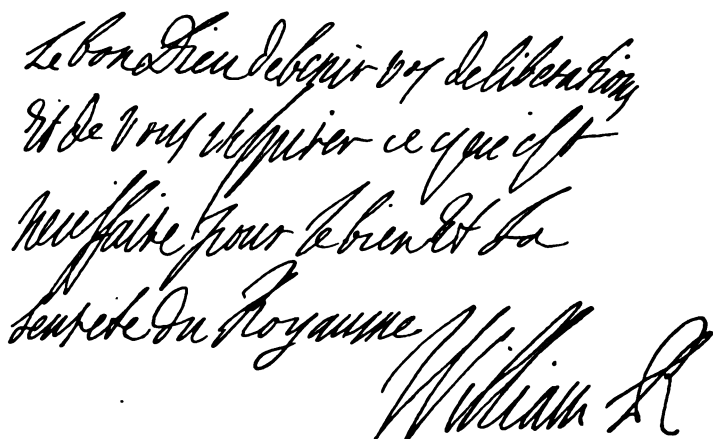 Le bon Dieu de benir vos deliberations
Et de vous inspirer ce que est
necessaire pour le bien Et la
seurete du Royaume
William R